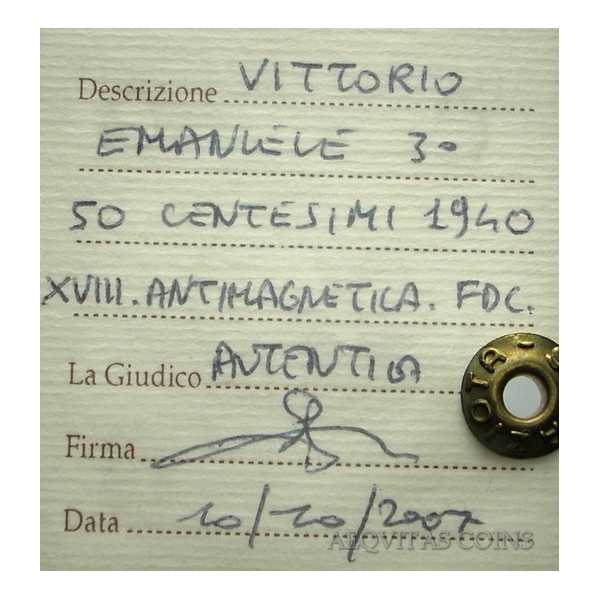 Descrizione VITTORIO
EMANUELE 3°
50 CENTESIMI 1940
XVIII. ANTIMAGNETICA. FDC.
La Giudico AUTENTICA
Firma
Data 10/10/2007
AEQVITAS COINS